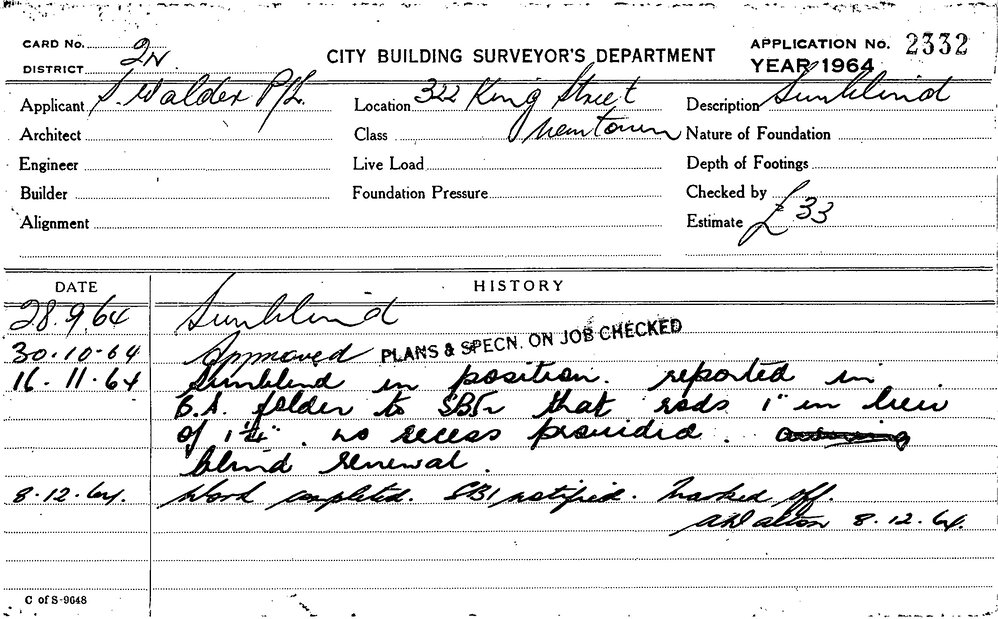 CARD No.
DISTRICT 2N
CITY BUILDING SURVEYOR'S DEPARTMENT
APPLICATION No. 2332
YEAR 1964
Applicant S. Walder P/L. Location 322 King Street Description Sunblind
Architect Class Newtown Nature of Foundation
Engineer Live Load Depth of Footings
Builder Foundation Pressure Checked by
Alignment Estimate £33
DATE HISTORY
28.9.64 Sunblind
30.10.64 Approved PLANS & SPECN. ON JOB CHECKED
16.11.64 Sunblind in position. reported in
B.A. folder to SBI that rods 1" in lieu
of 1¼". no recess provided.
blind renewal.
8.12.64. Work completed. SBI notified. Marked off.
8.12.64.
C of S-9648